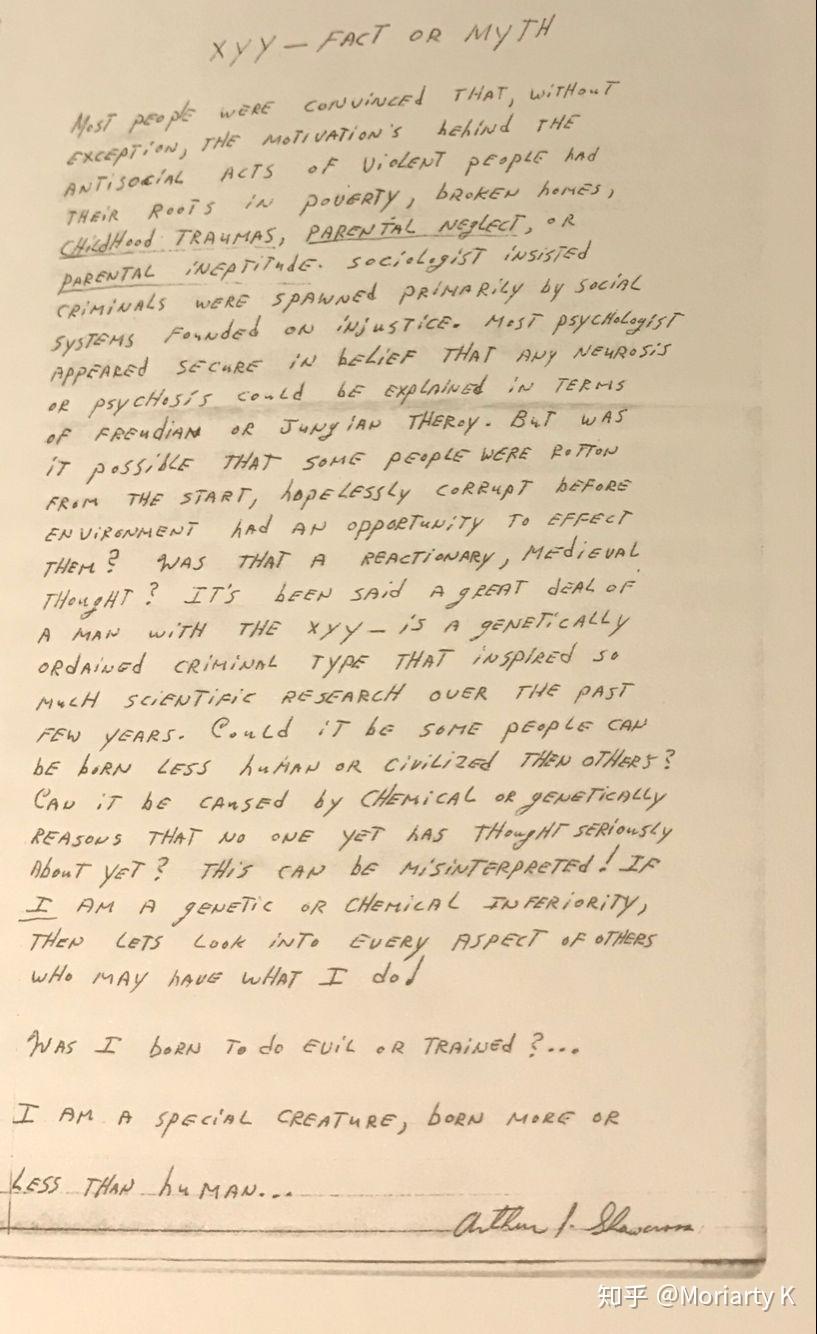 XYY — FACT OR MYTH
MOST PEOPLE WERE CONVINCED THAT, WITHOUT
EXCEPTION, THE MOTIVATION'S BEHIND THE
ANTISOCIAL ACTS OF VIOLENT PEOPLE HAD
THEIR ROOTS IN POVERTY, BROKEN HOMES,
CHILDHOOD TRAUMAS, PARENTAL NEGLECT, OR
PARENTAL INEPTITUDE. SOCIOLOGIST INSISTED
CRIMINALS WERE SPAWNED PRIMARILY BY SOCIAL
SYSTEMS FOUNDED ON INJUSTICE. MOST PSYCHOLOGIST
APPEARED SECURE IN BELIEF THAT ANY NEUROSIS
OR PSYCHOSIS COULD BE EXPLAINED IN TERMS
OF FREUDIAN OR JUNGIAN THEROY. BUT WAS
IT POSSIBLE THAT SOME PEOPLE WERE ROTTON
FROM THE START, HOPELESSLY CORRUPT BEFORE
ENVIRONMENT HAD AN OPPORTUNITY TO EFFECT
THEM? WAS THAT A REACTIONARY, MEDIEVAL
THOUGHT? IT'S BEEN SAID A GREAT DEAL OF
A MAN WITH THE XYY — IS A GENETICALLY
ORDAINED CRIMINAL TYPE THAT INSPIRED SO
MUCH SCIENTIFIC RESEARCH OVER THE PAST
FEW YEARS. COULD IT BE SOME PEOPLE CAN
BE BORN LESS HUMAN OR CIVILIZED THEN OTHERS?
CAN IT BE CAUSED BY CHEMICAL OR GENETICALLY
REASONS THAT NO ONE YET HAS THOUGHT SERIOUSLY
ABOUT YET? THIS CAN BE MISINTERPRETED! IF
I AM A GENETIC OR CHEMICAL INFERIORITY,
THEN LETS LOOK INTO EVERY ASPECT OF OTHERS
WHO MAY HAVE WHAT I DO!
WAS I BORN TO DO EVIL OR TRAINED?...
I AM A SPECIAL CREATURE, BORN MORE OR
LESS THAN HUMAN...
Arthur J. Shawcross
知乎 @Moriarty K